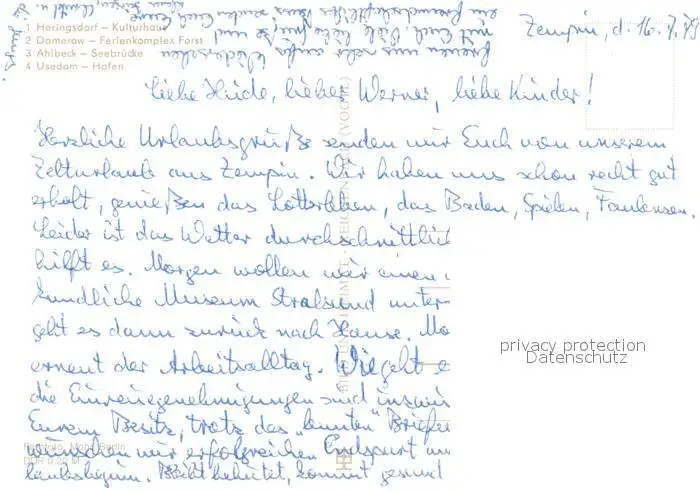 1 Heringsdorf – Kulturhaus
2 Damerow – Ferienkomplex Forst
3 Ahlbeck – Seebrücke
4 Usedom – Hafen
Zempin, d. 16.7.
Liebe Heide, lieber Werner, liebe Kinder!
Herzliche Urlaubsgrüße senden wir Euch von unserem
Zelturlaub aus Zempin. Wir haben uns schon recht gut
erholt, genießen das Lotterleben, das Baden, Spielen, Faulensen.
Leider ist das Wetter durchschnittlich
hilft es. Morgen wollen wir einen
kundliche Museum Stralsund unter-
geht es dann zurück nach Hause. Mo
erneut der Arbeitsalltag. Wie geht e
die Einreisegenehmigungen sind inzwi
Eurem Besitz, trotz das "bunten" Briefe
wünschen wir erfolgreichen Endspurt un
laubsbeginn. Bleibt behütet, kommt gesund
freuen uns sehr aufs Wiedersehen
mit Euch. Viele liebe Grüße und
privacy protection
Datenschutz